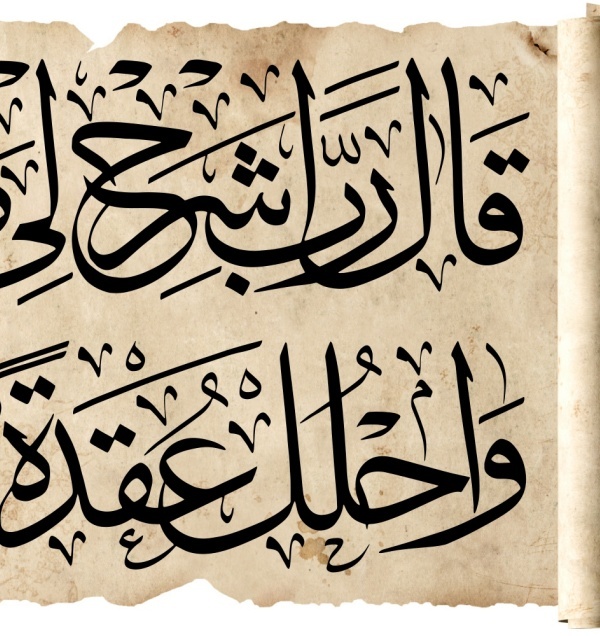 قَالَ رَبِّ اشْرَحْ لِي
وَاحْلُلْ عُقْدَةً